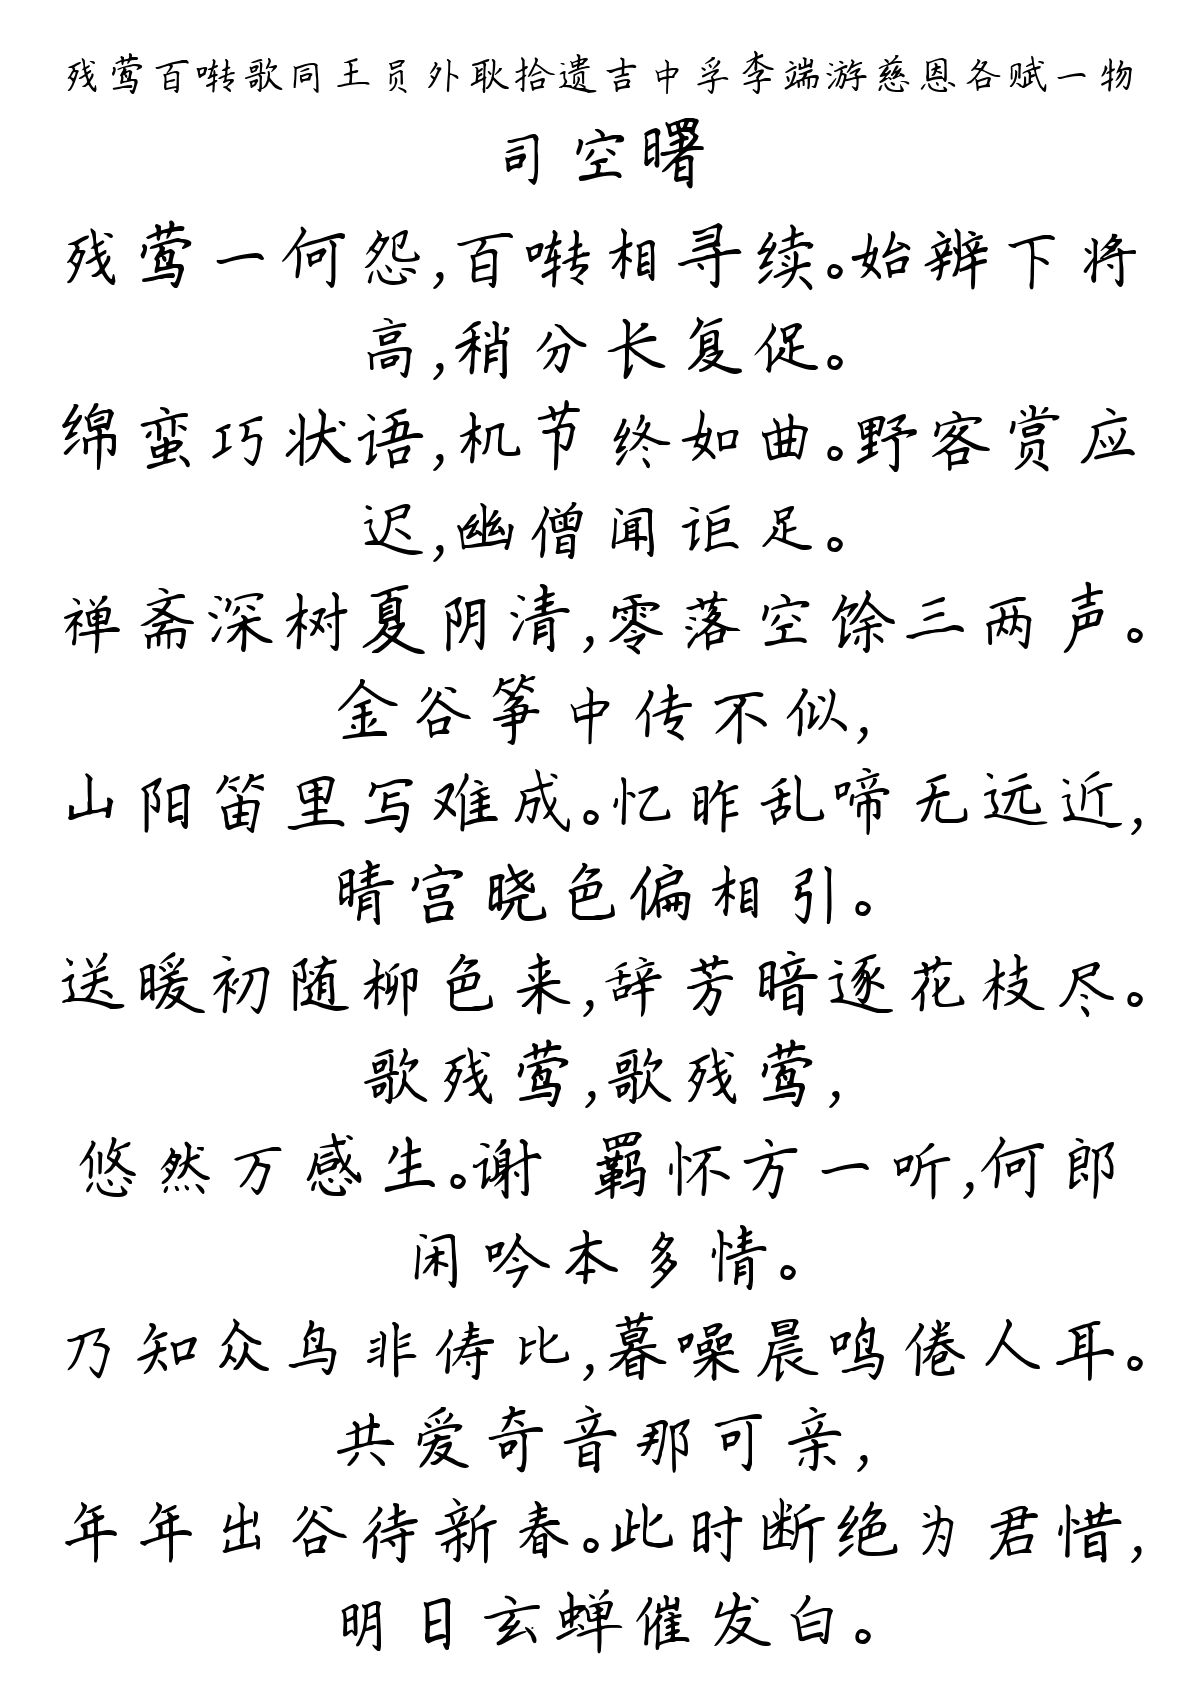 残莺百啭歌同王员外耿拾遗吉中孚李端游慈恩各赋一物
司空曙
残莺一何怨,百啭相寻续。始辨下将
高,稍分长复促。
绵蛮巧状语,机节终如曲。野客赏应
迟,幽僧闻讵足。
禅斋深树夏阴清,零落空馀三两声。
金谷筝中传不似,
山阳笛里写难成。忆昨乱啼无远近,
晴宫晓色偏相引。
送暖初随柳色来,辞芳暗逐花枝尽。
歌残莺,歌残莺,
悠然万感生。谢 羁怀方一听,何郎
闲吟本多情。
乃知众鸟非俦比,暮噪晨鸣倦人耳。
共爱奇音那可亲,
年年出谷待新春。此时断绝为君惜,
明日玄蝉催发白。